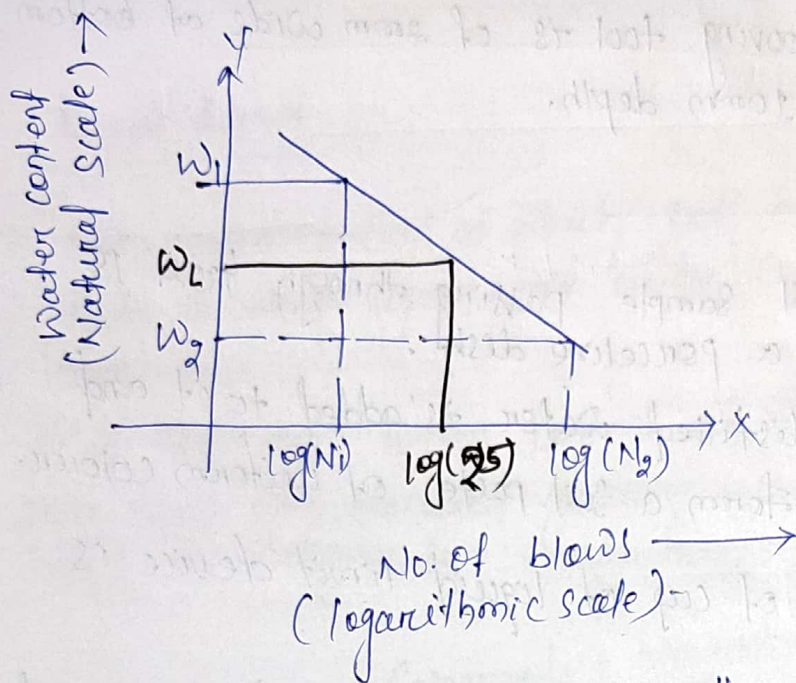 Y
Water content
(Natural scale) →
W1
WL
W2
X
log(N1) log(25) log(N2)
No. of blows →
(logarithmic scale)